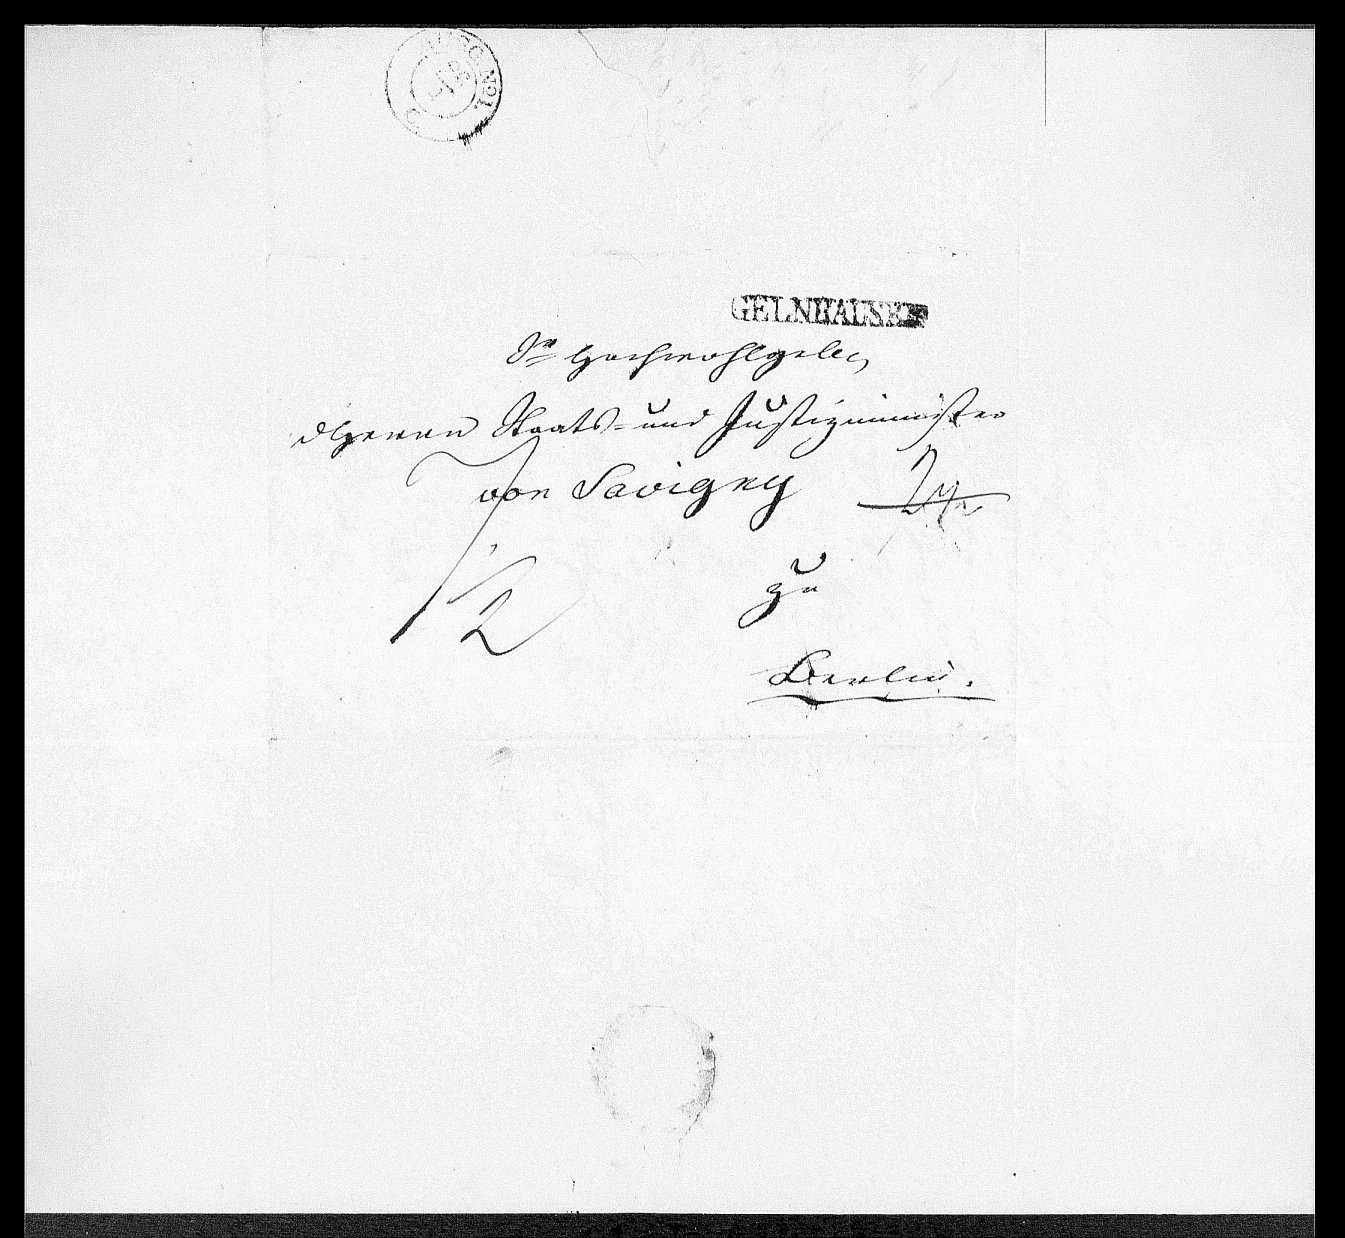 GELNHAUSEN
Sr Hochwohlgeb.
d Herrn Staats- und Justizminister
von Savigny
zu
Berlin.